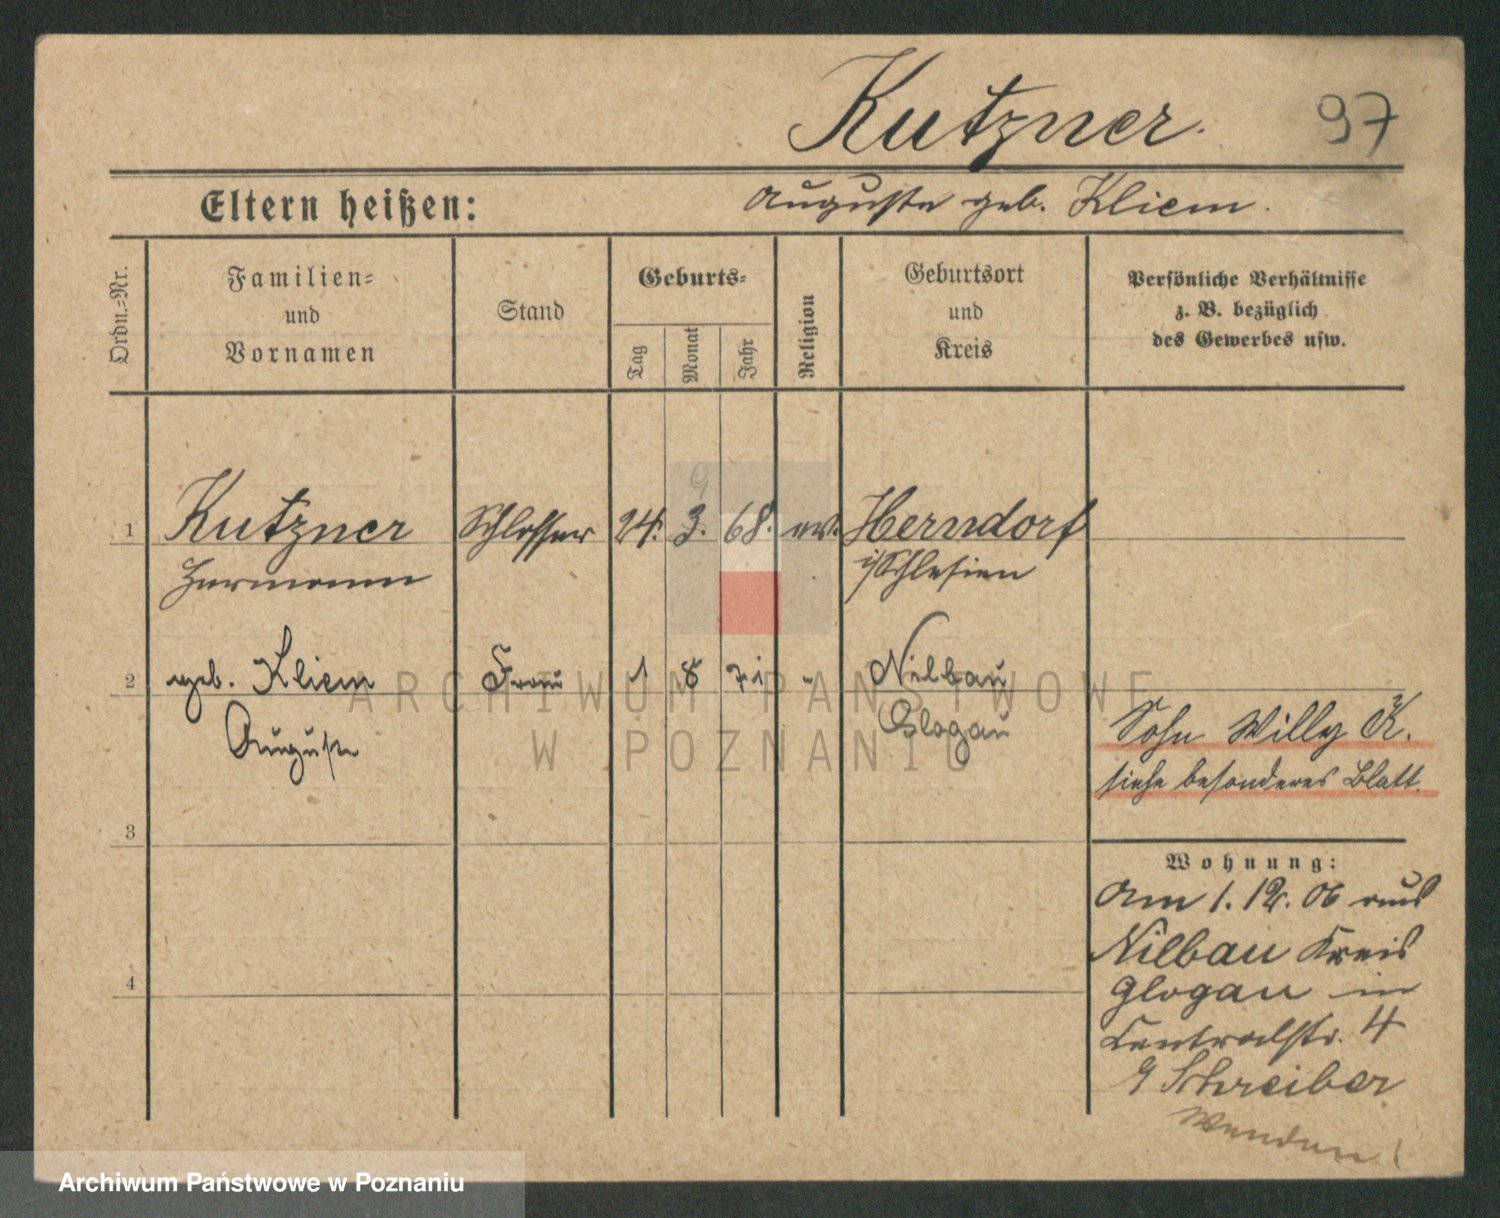 Kutzner.
97
Eltern heißen:
Auguste geb. Kliem.
Ordn.-Nr.
Familien- und Vornamen
Stand
Geburts-
Tag
Monat
Jahr
Religion
Geburtsort und Kreis
Persönliche Verhältnisse
z. B. bezüglich
des Gewerbes usw.
9
1 Kutzner Schlosser 24. 3. 68. ev. Herndorf
Hermann i/Schlesien
2 geb. Kliem Frau 1 8 71 " Nilbau
Auguste Glogau
Sohn Willy K.
siehe besonderes Blatt.
3
Wohnung:
Am 1. 12. 06 aus
Nilbau Kreis
4
Glogau in
Centralstr. 4
Schreiber
Wenden!
ARCHIWUM PAŃSTWOWE
W POZNANIU
Archiwum Państwowe w Poznaniu